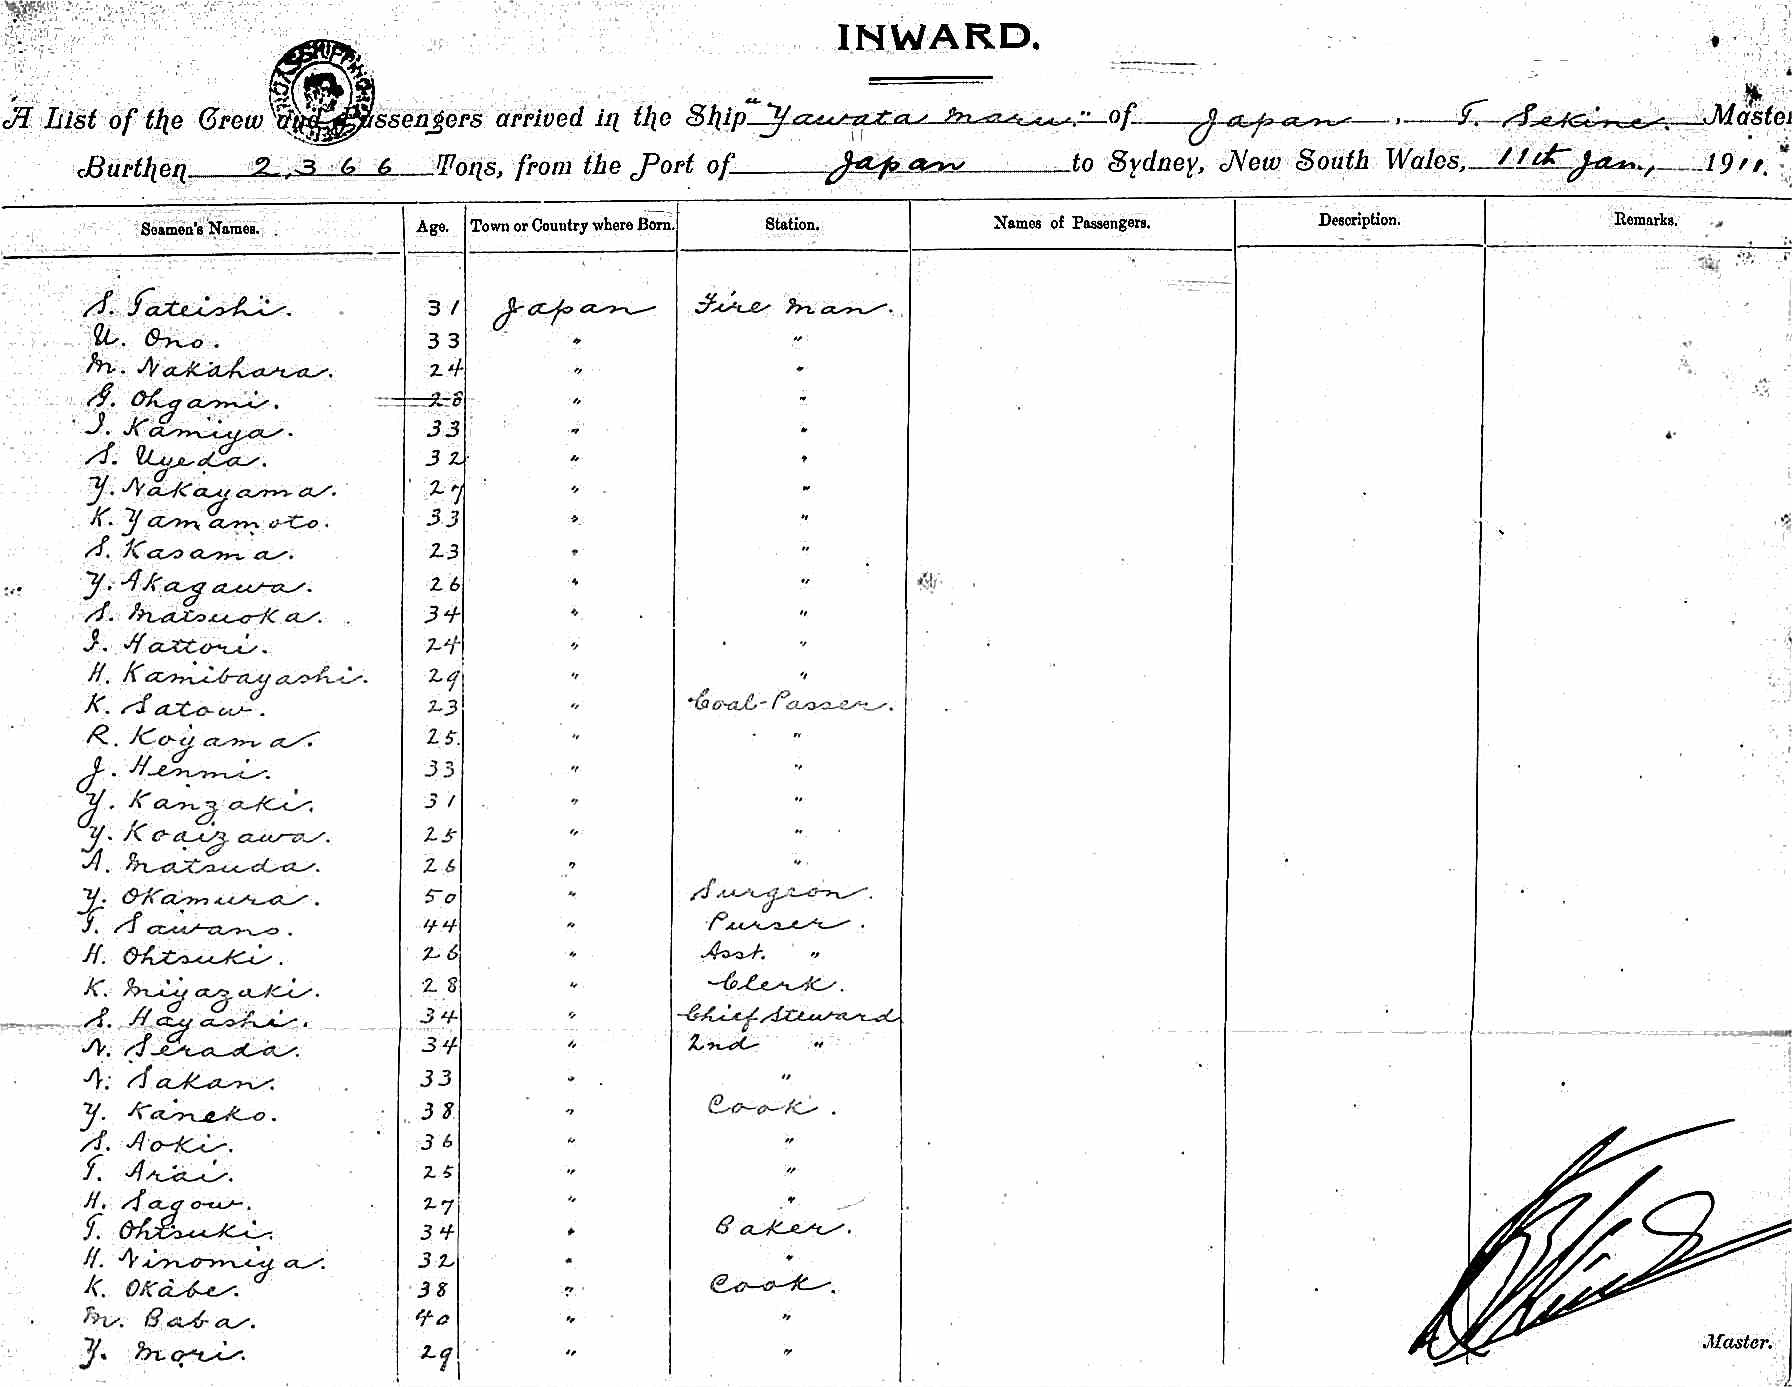 INWARD.
A List of the Crew and Passengers arrived in the Ship "Yawata Maru." of Japan, T. Sekine. Master
Burthen 2,366 Tons, from the Port of Japan to Sydney, New South Wales, 11th Jan., 1911.
Seamen's Names. Age. Town or Country where Born. Station. Names of Passengers. Description. Remarks.
S. Tateishi. 31 Japan Fire Man.
U. Ono. 33 " "
M. Nakahara. 24 " "
G. Ohgami. 28 " "
I. Kamiya. 33 " "
S. Uyeda. 32 " "
Y. Nakayama. 27 " "
K. Yamamoto. 33 " "
S. Kasama. 23 " "
Y. Akagawa. 26 " "
S. Matsuoka. 34 " "
I. Hattori. 24 " "
H. Kamibayashi. 29 " "
K. Satow. 23 " Coal-Passer.
R. Koyama. 25. " "
J. Henmi. 33 " "
Y. Kanzaki. 31 " "
Y. Koaizawa. 25 " "
A. Matsuda. 26 " "
Y. Okamura. 50 " Surgeon.
T. Sawano. 44 " Purser.
H. Ohtsuki. 26 " Asst. "
K. Miyazaki. 28 " Clerk.
S. Hayashi. 34 " Chief Steward
N. Serada. 34 " 2nd "
N. Sakan. 33 " "
Y. Kaneko. 38 " Cook.
S. Aoki. 36 " "
T. Arai. 25 " "
H. Sagow. 27 " "
T. Ohtsuki. 34 " Baker.
H. Ninomiya. 32 " "
K. Okabe. 38 " Cook.
M. Baba. 40 " "
Y. Mori. 29 " "
Master.